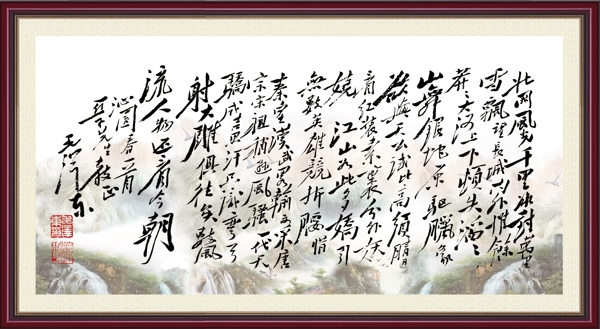 北国風光千里冰封萬里
雪飄望長城内外惟餘
莽々大河上下頓失滔々
山舞銀蛇原驅臘象
欲與天公試比高須晴日
看紅裝素裹分外妖
嬈 江山如此多嬌引
無數英雄競折腰惜
秦皇漢武略輸文采唐
宗宋祖稍遜風騷一代天
驕成吉思汗只識彎弓
射大雕俱往矣數風
流人物还看今朝
沁園春一首
亞子先生教正
毛澤東